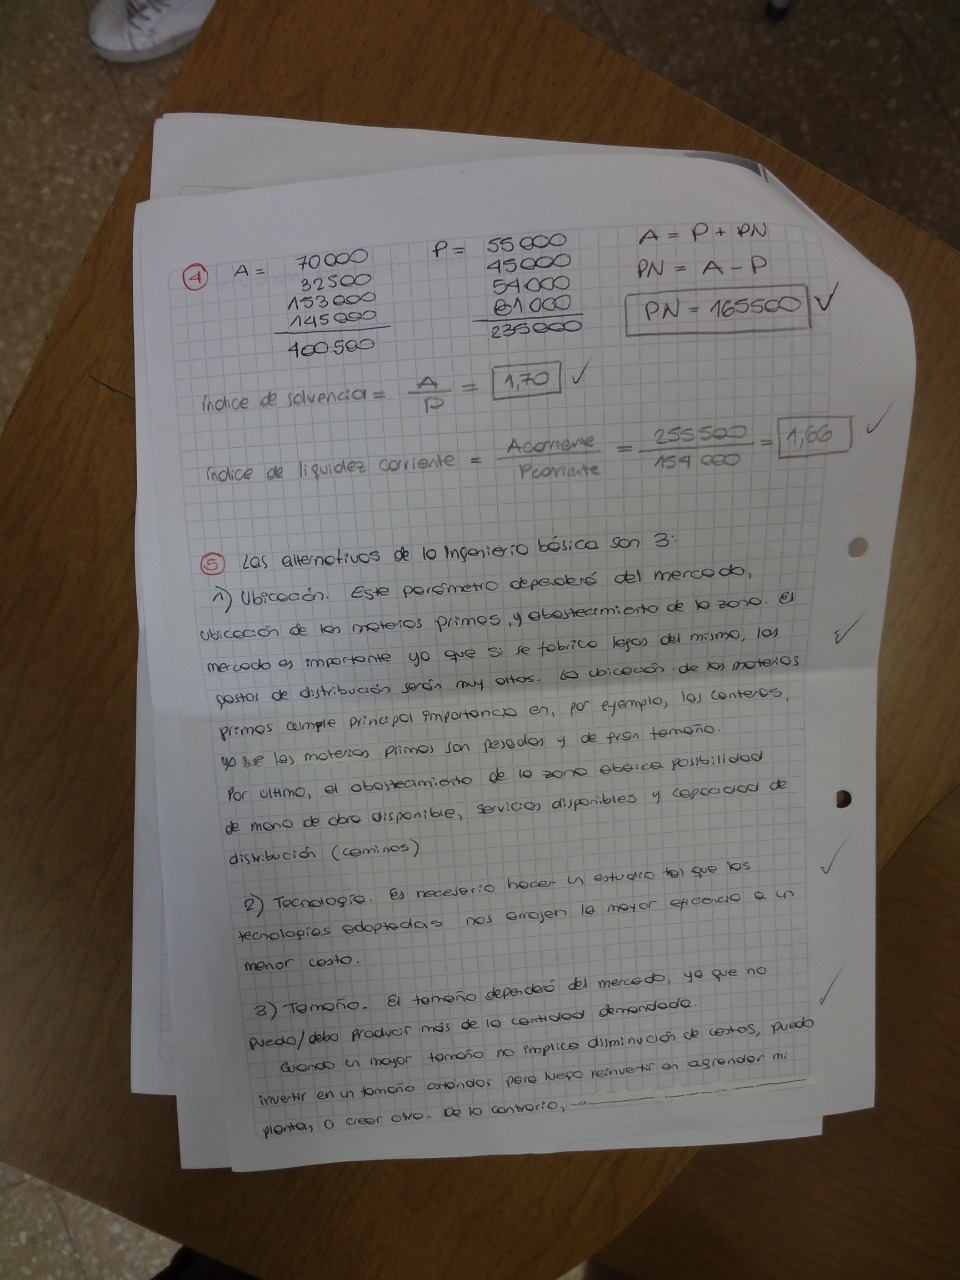 4 A = 70000 P = 55000 A = P + PN
32500 45000 PN = A - P
153000 54000 PN = 165500
145000 81000
400500 235000
índice de solvencia = A/P = 1,70
índice de liquidez corriente = Acorriente/Pcorriente = 255500/154000 = 1,66
5 Las alternativas de la Ingeniería básica son 3:
1) Ubicación. Este parámetro dependerá del mercado,
ubicación de las materias primas, y abastecimiento de la zona. El
mercado es importante ya que si se fabrica lejos del mismo, los
gastos de distribución serán muy altos. La ubicación de las materias
primas cumple principal importancia en, por ejemplo, las canteras,
ya que las materias primas son pesadas y de gran tamaño.
Por ultimo, el abastecimiento de la zona abarca posibilidad
de mano de obra disponible, servicios disponibles y capacidad de
distribución (caminos)
2) Tecnología. Es necesario hacer un estudio tal que las
tecnologías adoptadas nos arrojen la mayor eficiencia a un
menor costo.
3) Tamaño. El tamaño dependerá del mercado, ya que no
puedo/debo producir más de la cantidad demandada.
Cuando un mayor tamaño no implica disminución de costos, puedo
invertir en un tamaño estándar pero luego reinvertir en agrandar mi
planta, o crear otra. De lo contrario,